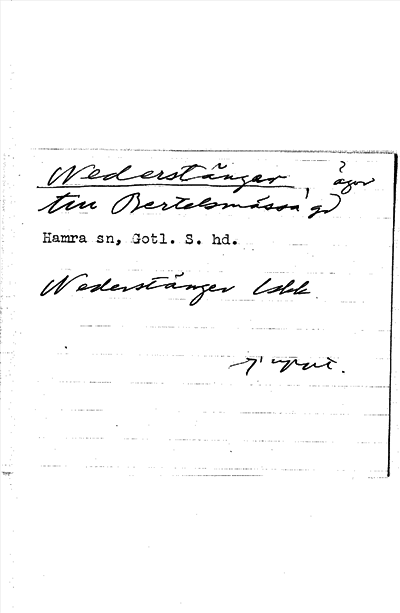 Nederstängar, ägor
till Bertelsmässa gd
Hamra sn, Gotl. S. hd.
Nederstänger Ldk
ej uppt.